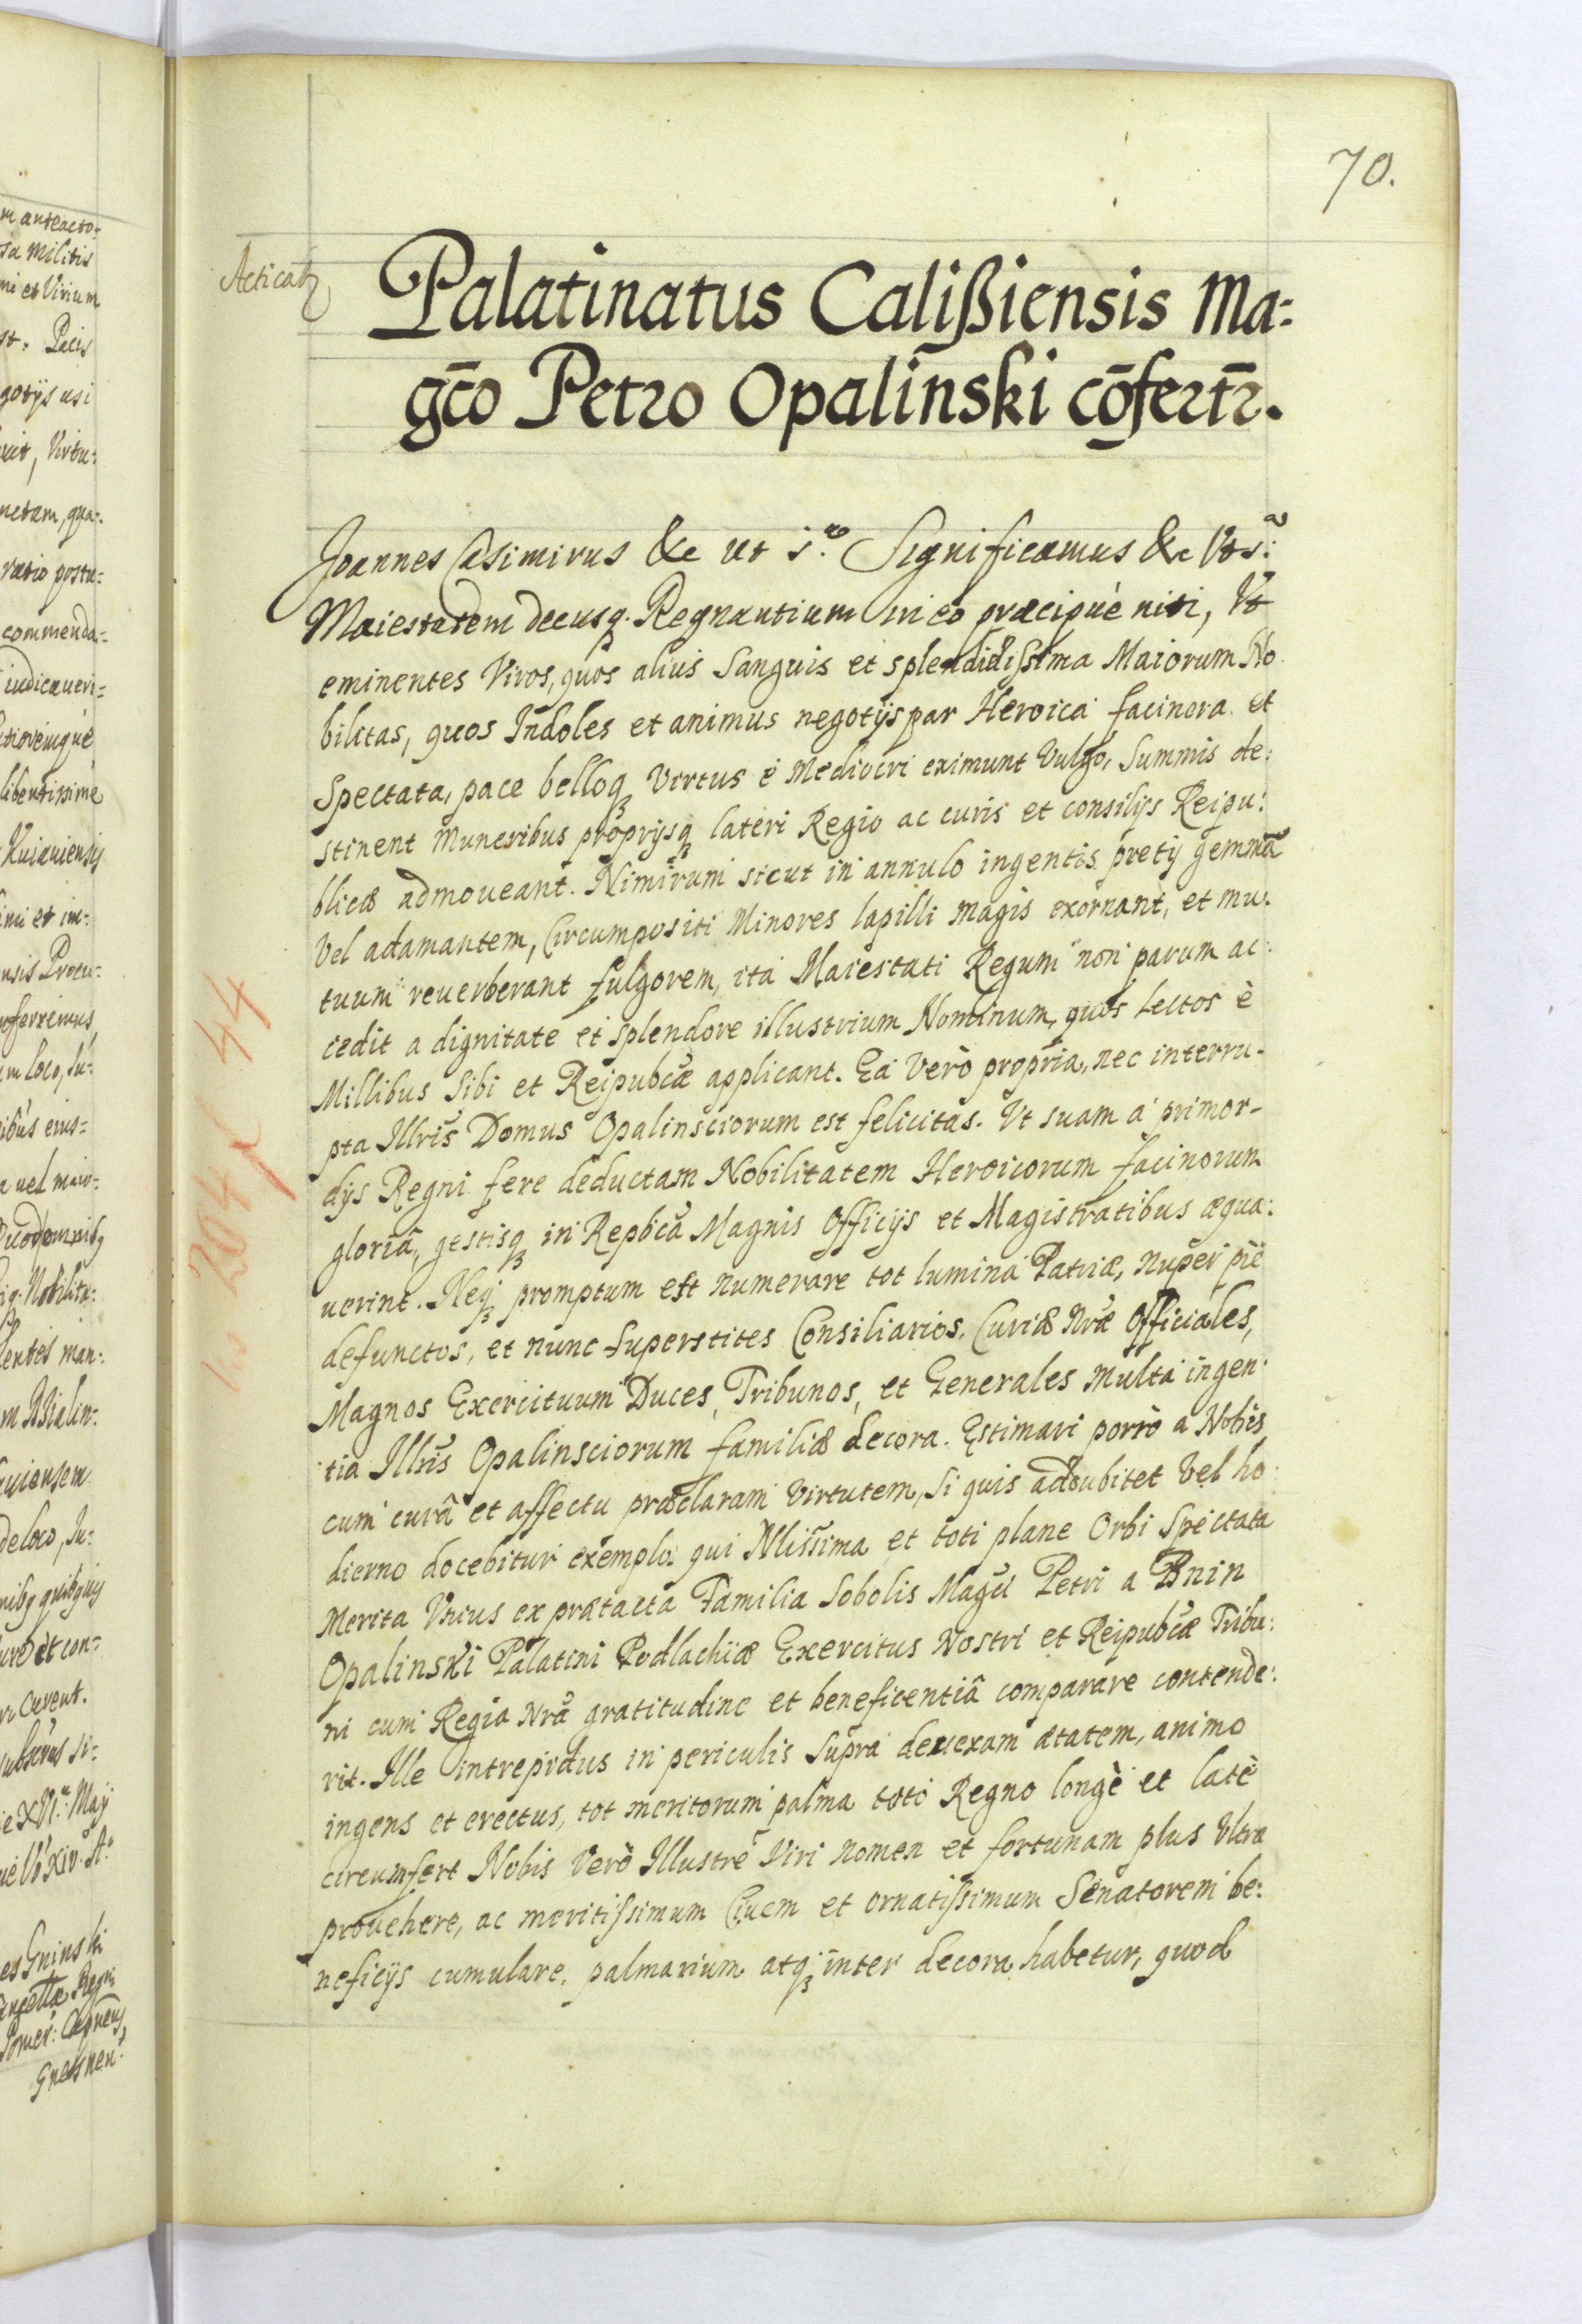 70.
Acticatz
Palatinatus Calißiensis Ma=
gc̄o Petro Opalinski cōfertr.
Joannes Casimirus &c ut s.a Significamus &c Vts:
Maiestatem decusq. Regnantium in eo præcipuè niti, Vt
eminentes Viros, quos altus Sanguis et splendidissima Maiorum No
bilitas, quos Indoles et animus negotijs par Heroica facinora et
Spectata, pace belloq Virtus è Mediocri eximunt Vulgo, Summis de:
stinent Muneribus proprijsq lateri Regio ac curis et consilijs Reipu:
blicæ admoueant. Nimirum sicut in annulo ingentis pretij gemmã
Vel adamantem, Circumpositi Minores lapilli magis exornant, et mu.
tuum reuerberant fulgorem, ita Maiestati Regum non parum ac:
cedit a dignitate et splendore illustrium Nominum, quos Lectos è
Millibus Sibi et Reipubcæ applicant. Ea Verò propria, nec interru-
pta Illris Domus Opalinsciorum est felicitas. Vt suam à primor-
dijs Regni fere deductam Nobilitatem Heroicorum facinorum
gloriâ, gestisq in Repbca Magnis Officijs et Magistratibus æqua:
uerint. Neq promptum est numerare tot lumina Patriæ, nuper piè
defunctos, et nunc Superstites Consiliarios, Curiæ Nræ Officiales,
Magnos Exercituum Duces, Tribunos, et Generales multa ingen:
tia Illris Opalinsciorum familiæ decora. Estimari porrò a Nobis
cum curâ et affectu præclaram Virtutem, Si quis addubitet Vel ho:
dierno docebitur exemplo: qui Nlissima et toti plane Orbi Spectata
Merita Vnius ex prætacta Familia Sobolis Magci Petri a Bnin
Opalinski Palatini Podlachiæ Exercitus Nostri et Reipubcæ Tribu:
ni cum Regia Nrã gratitudine et beneficentiâ comparare contende:
rit. Ille intrepidus in periculis Supra deuexam ætatem, animo
ingens et erectus, tot meritorum palma toto Regno longè et latè
circumfert Nobis Verò Illustrẽ Viri nomen et fortunam plus Vltra
prouehere, ac meritissimum Ciuem et ornatissimum Senatorem be:
neficijs cumulare, palmarium atq inter decora habetur, quod